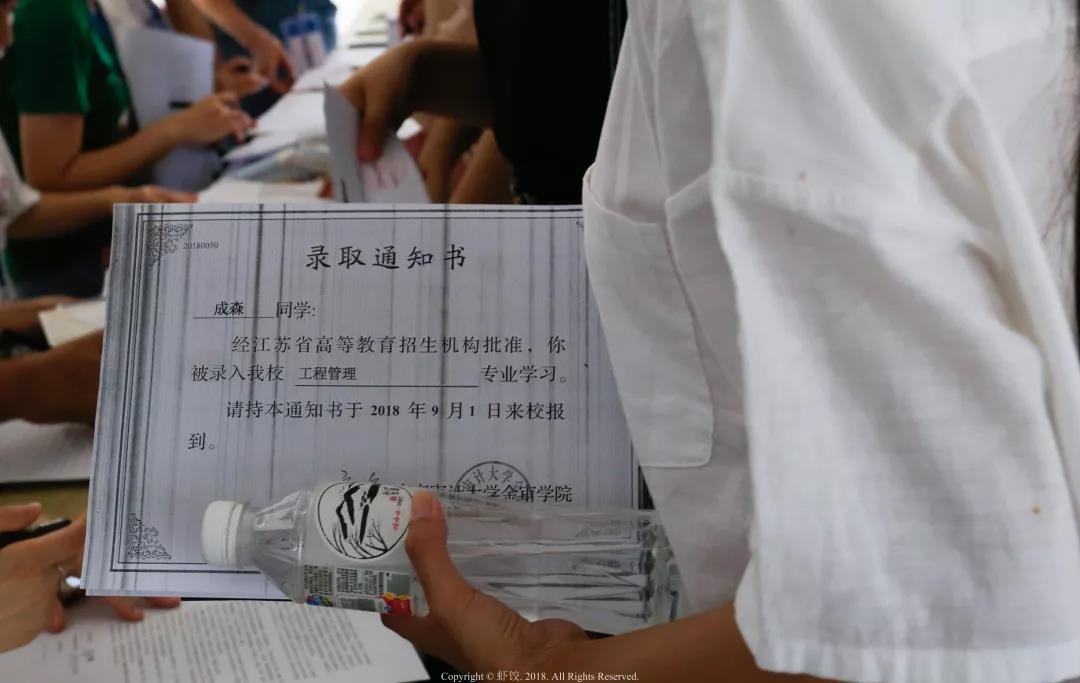 20180050
录取通知书
成森 同学:
经江苏省高等教育招生机构批准，你
被录入我校 工程管理 专业学习。
请持本通知书于 2018 年 9 月 1 日来校报
到。
审计大学
审计大学金审学院
Copyright © 虾饺. 2018. All Rights Reserved.